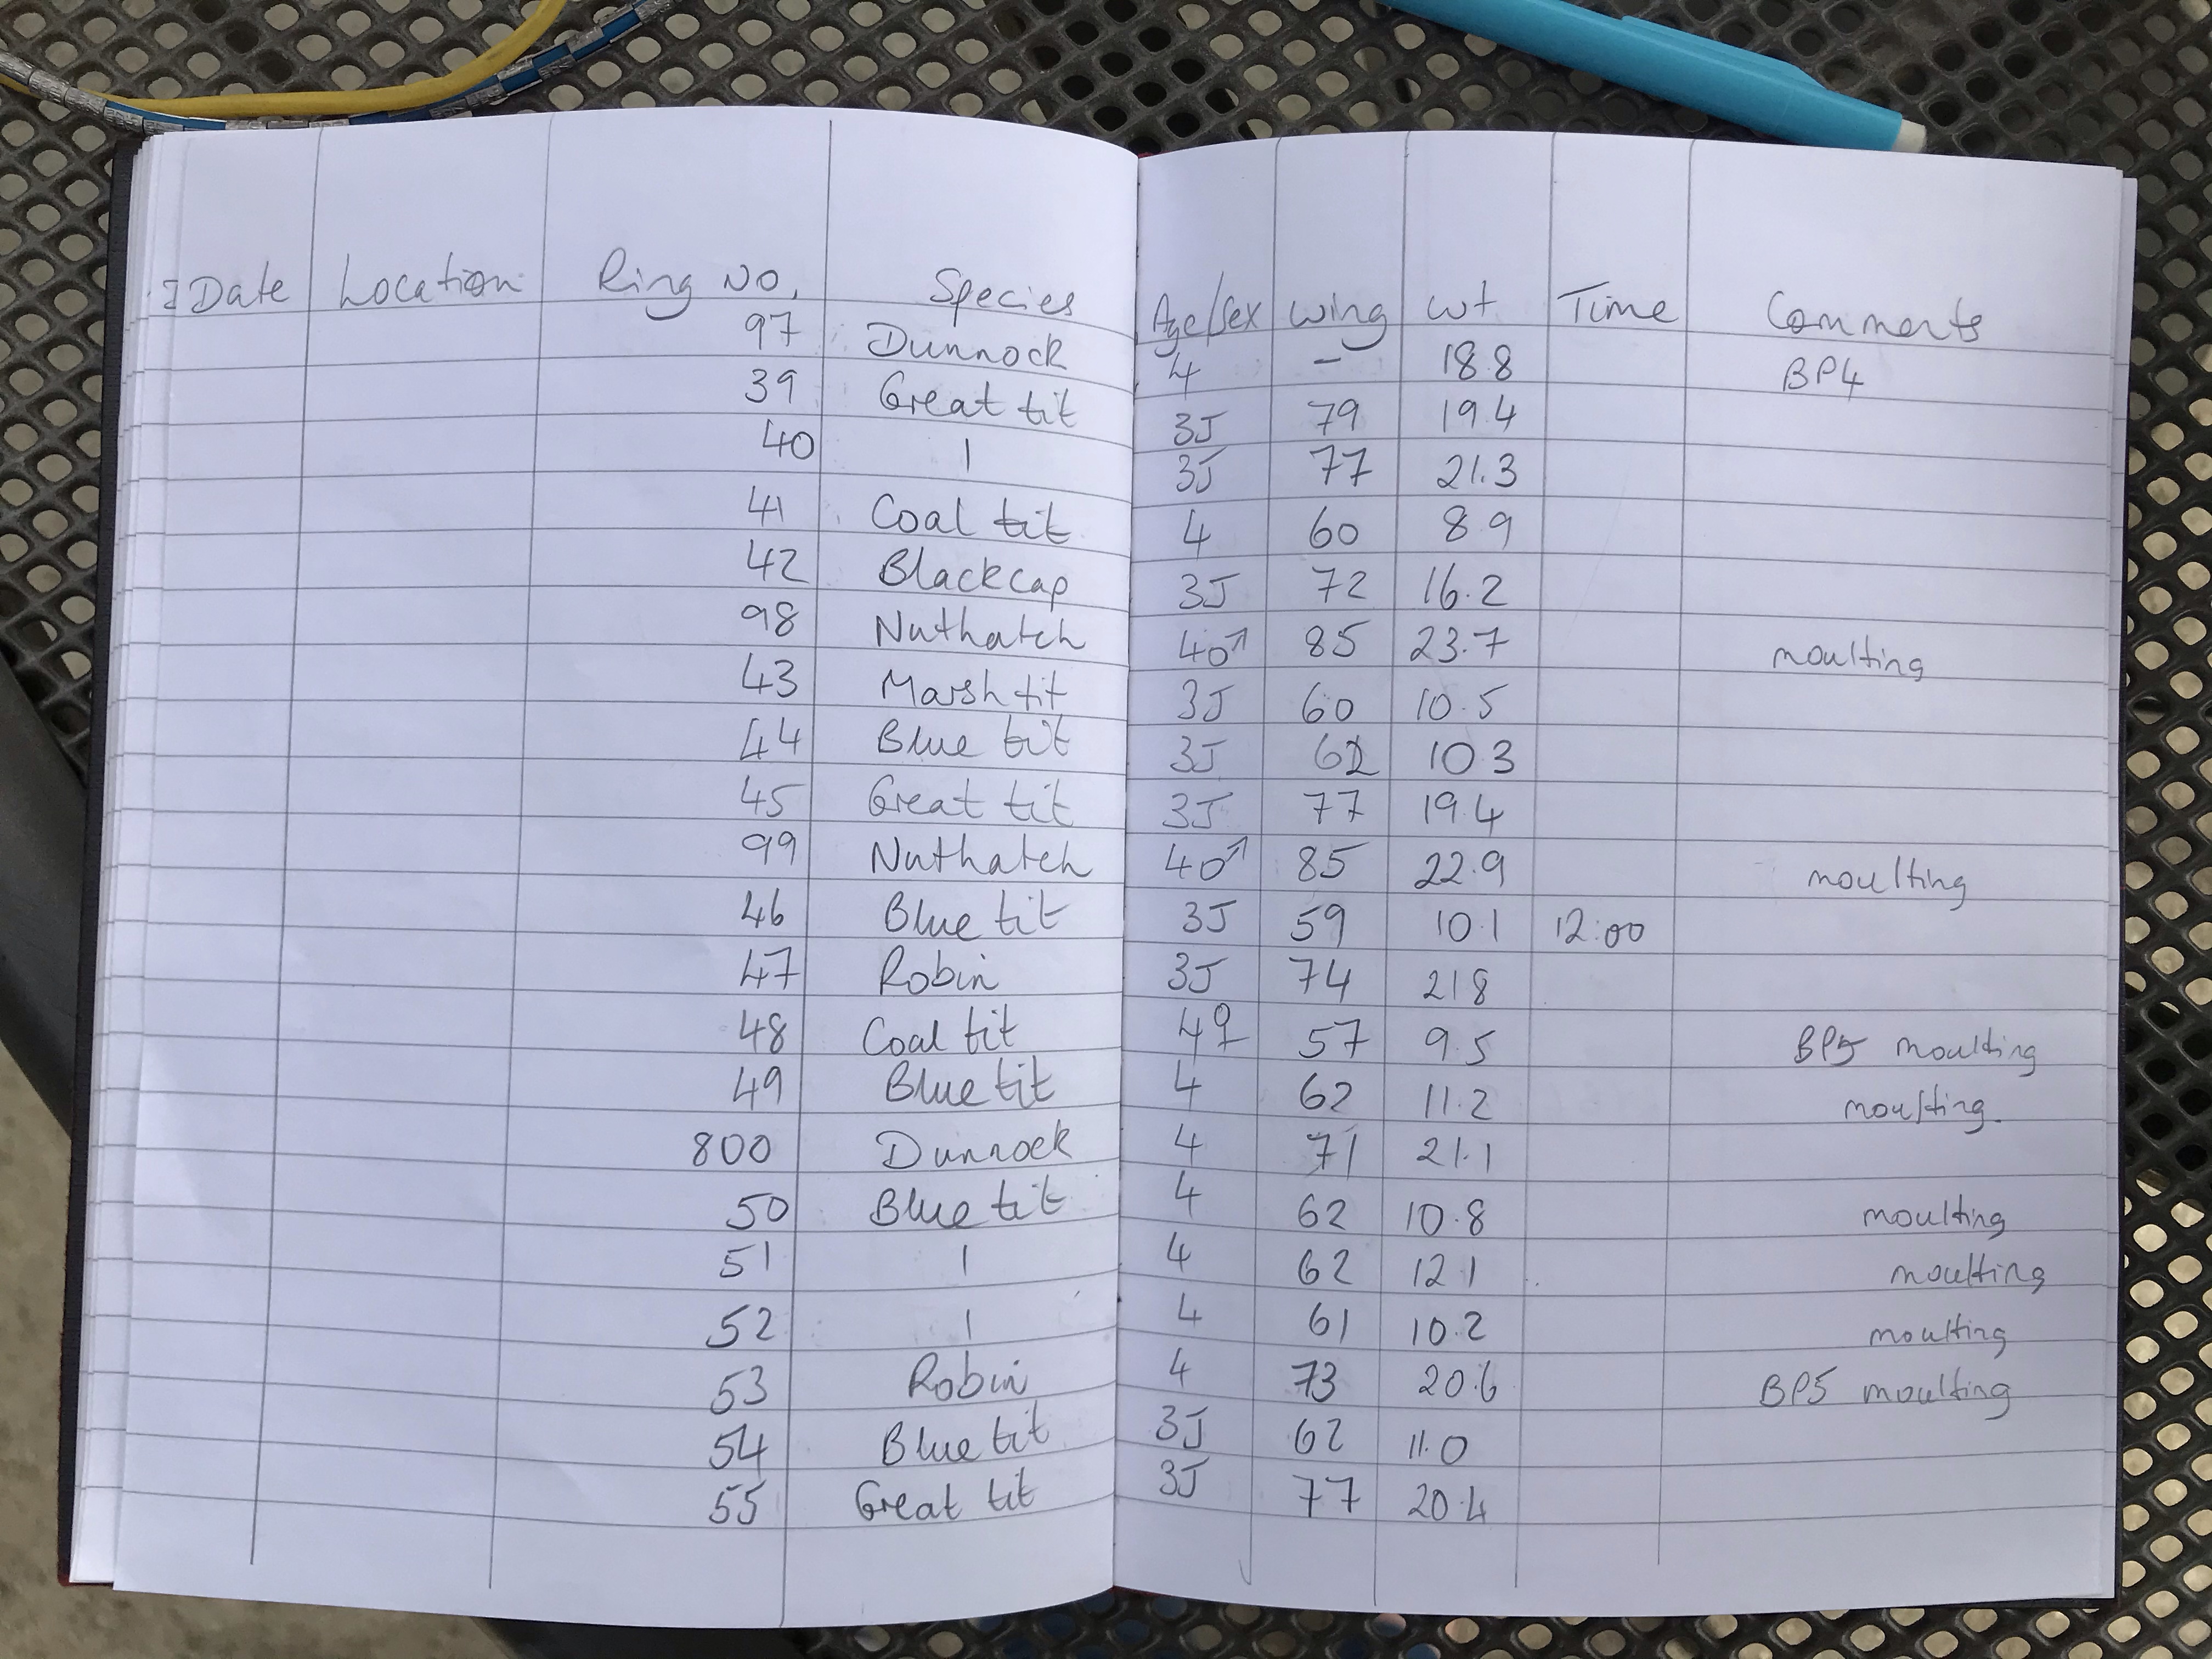 Date Location Ring No. Species Age/Sex Wing Wt Time Comments
97 Dunnock 4 - 18.8 BP4
39 Great tit 3J 79 19.4
40 | 3J 77 21.3
41 Coal tit 4 60 8.9
42 Blackcap 3J 72 16.2
98 Nuthatch 4♂ 85 23.7 moulting
43 Marsh tit 3J 60 10.5
44 Blue tit 3J 62 10.3
45 Great tit 3J 77 19.4
99 Nuthatch 4♂ 85 22.9 moulting
46 Blue tit 3J 59 10.1 12:00
47 Robin 3J 74 21.8
48 Coal tit 4♀ 57 9.5 BP5 moulting
49 Blue tit 4 62 11.2 moulting.
800 Dunnock 4 71 21.1
50 Blue tit 4 62 10.8 moulting
51 | 4 62 12.1 moulting
52 | 4 61 10.2 moulting
53 Robin 4 73 20.6 BP5 moulting
54 Blue tit 3J 62 11.0
55 Great tit 3J 77 20.4